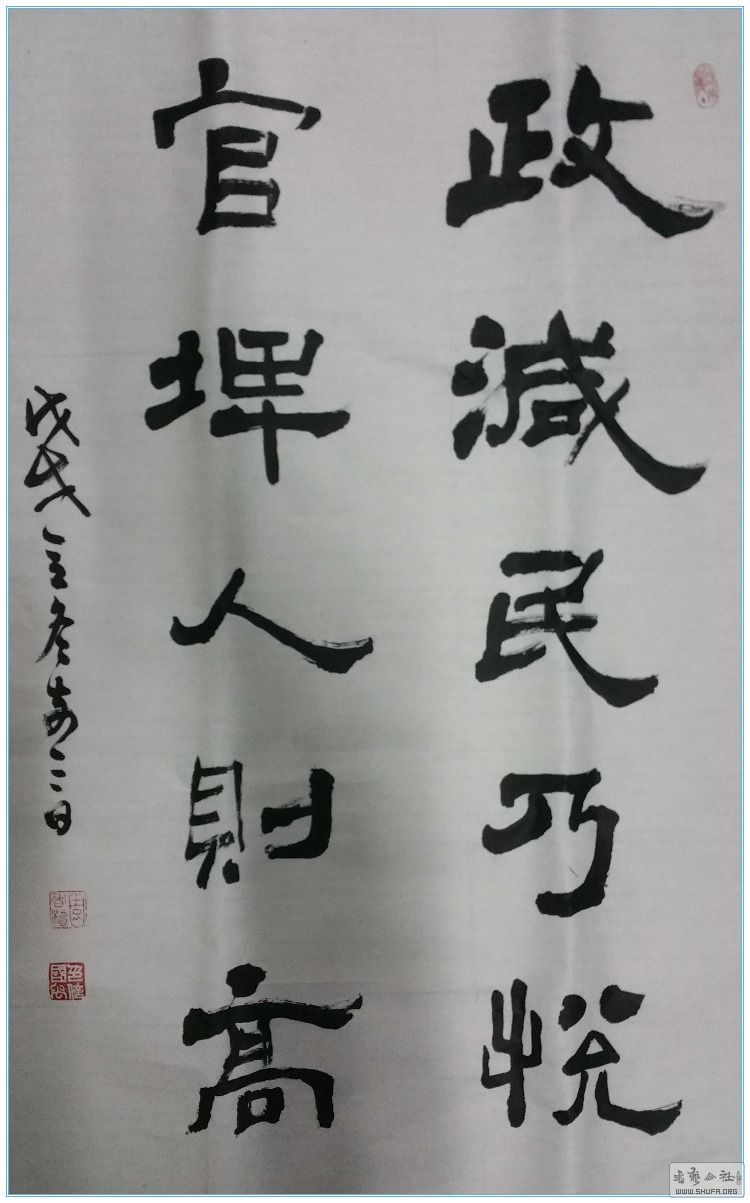 政減民乃悦
官埤人則高
戊戌立冬前二日
书艺公社
WWW.SHUFA.ORG